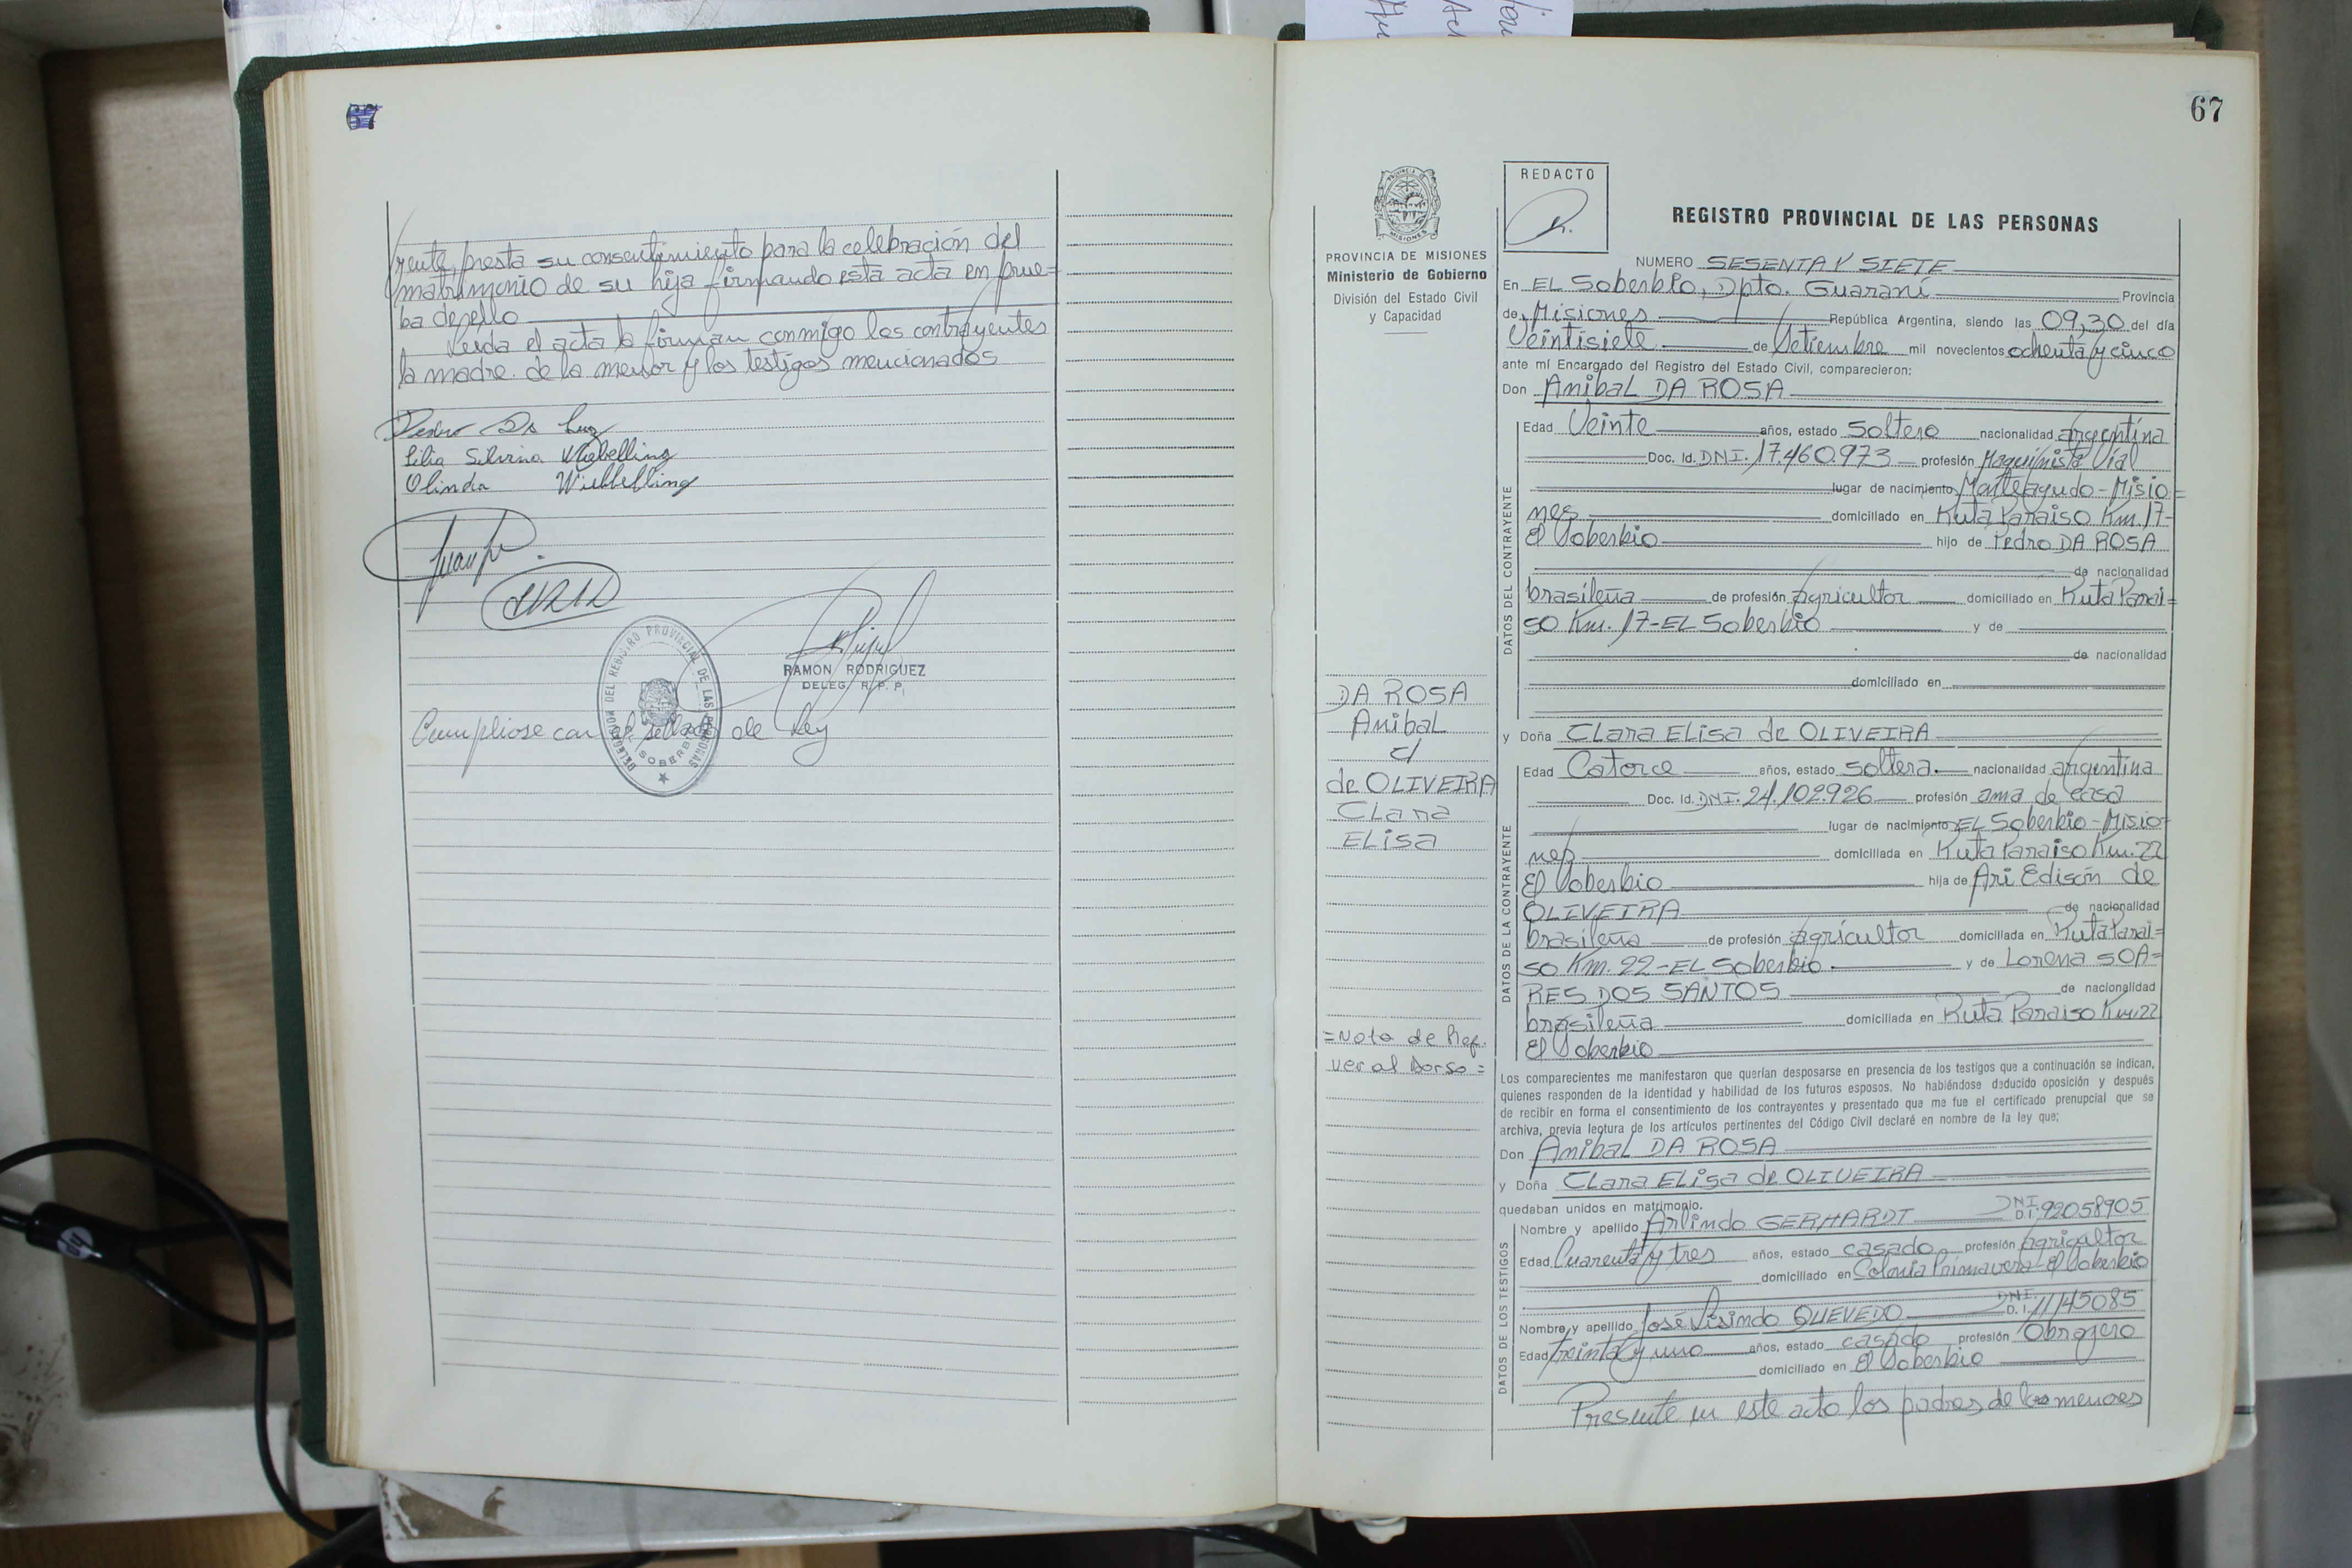 67
rente, presta su consentimiento para la celebración del
matrimonio de su hija firmando esta acta en prue=
ba de ello
Leida el acta la firman conmigo los contrayentes
la madre de la menor y los testigos mencionados
Pedro Da Luz
Silvina
Olinda Wiebbelling
RAMON RODRIGUEZ
DELEG. R. P. P.
DELEGACION DEL REGISTRO PROVINCIAL DE LAS PERSONAS
SOBERBIO
Cumpliose con el sellado de Ley
67
PROVINCIA DE MISIONES
Ministerio de Gobierno
División del Estado Civil
y Capacidad
DA ROSA
Anibal
c/
de OLIVEIRA
Clara
Elisa
=Nota de Ref.
ver al Dorso=
REDACTO
REGISTRO PROVINCIAL DE LAS PERSONAS
NUMERO SESENTA Y SIETE
En EL Soberbio, Dpto. Guaraní Provincia
de Misiones República Argentina, siendo las 09,30 del día
Veintisiete de Setiembre mil novecientos ochenta y cinco
ante mí Encargado del Registro del Estado Civil, comparecieron:
Don Anibal DA ROSA
DATOS DEL CONTRAYENTE
Edad Veinte años, estado soltero nacionalidad argentina
Doc. Id. DNI. 17.460.973 profesión Maquinista Vial
lugar de nacimiento Monteagudo - Misio=
nes domiciliado en Ruta Paraiso Km. 17-
El Soberbio hijo de Pedro DA ROSA
de nacionalidad
brasileña de profesión agricultor domiciliado en Ruta Parai=
so Km. 17-EL Soberbio y de
de nacionalidad
domiciliado en
y Doña Clara Elisa de OLIVEIRA
DATOS DE LA CONTRAYENTE
Edad Catorce años, estado soltera. nacionalidad argentina
Doc. Id. DNI. 24.102.926 profesión ama de casa
lugar de nacimiento EL Soberbio - Misio=
nes domiciliada en Ruta Paraiso Km. 22
El Soberbio hija de Ari Edisón de
OLIVEIRA de nacionalidad
brasileña de profesión agricultor domiciliada en Ruta Parai=
so Km. 22-EL Soberbio. y de Lorena SOA=
RES DOS SANTOS de nacionalidad
brasileña domiciliada en Ruta Paraiso Km. 22
El Soberbio
Los comparecientes me manifestaron que querían desposarse en presencia de los testigos que a continuación se indican,
quienes responden de la identidad y habilidad de los futuros esposos. No habiéndose deducido oposición y después
de recibir en forma el consentimiento de los contrayentes y presentado que me fue el certificado prenupcial que se
archiva, previa lectura de los artículos pertinentes del Código Civil declaré en nombre de la ley que;
Don Anibal DA ROSA
y Doña Clara Elisa de OLIVEIRA
quedaban unidos en matrimonio.
DATOS DE LOS TESTIGOS
Nombre y apellido Arlindo GERHARDT DNI. D.I. 92058905
Edad Cuarenta y tres años, estado casado profesión agricultor
domiciliado en Colonia Primavera - El Soberbio
Nombre y apellido José Lisindo QUEVEDO DNI. D.I. 11145085
Edad treinta y uno años, estado casado profesión Obrajero
domiciliado en El Soberbio
Presente en este acto los padres de los menores